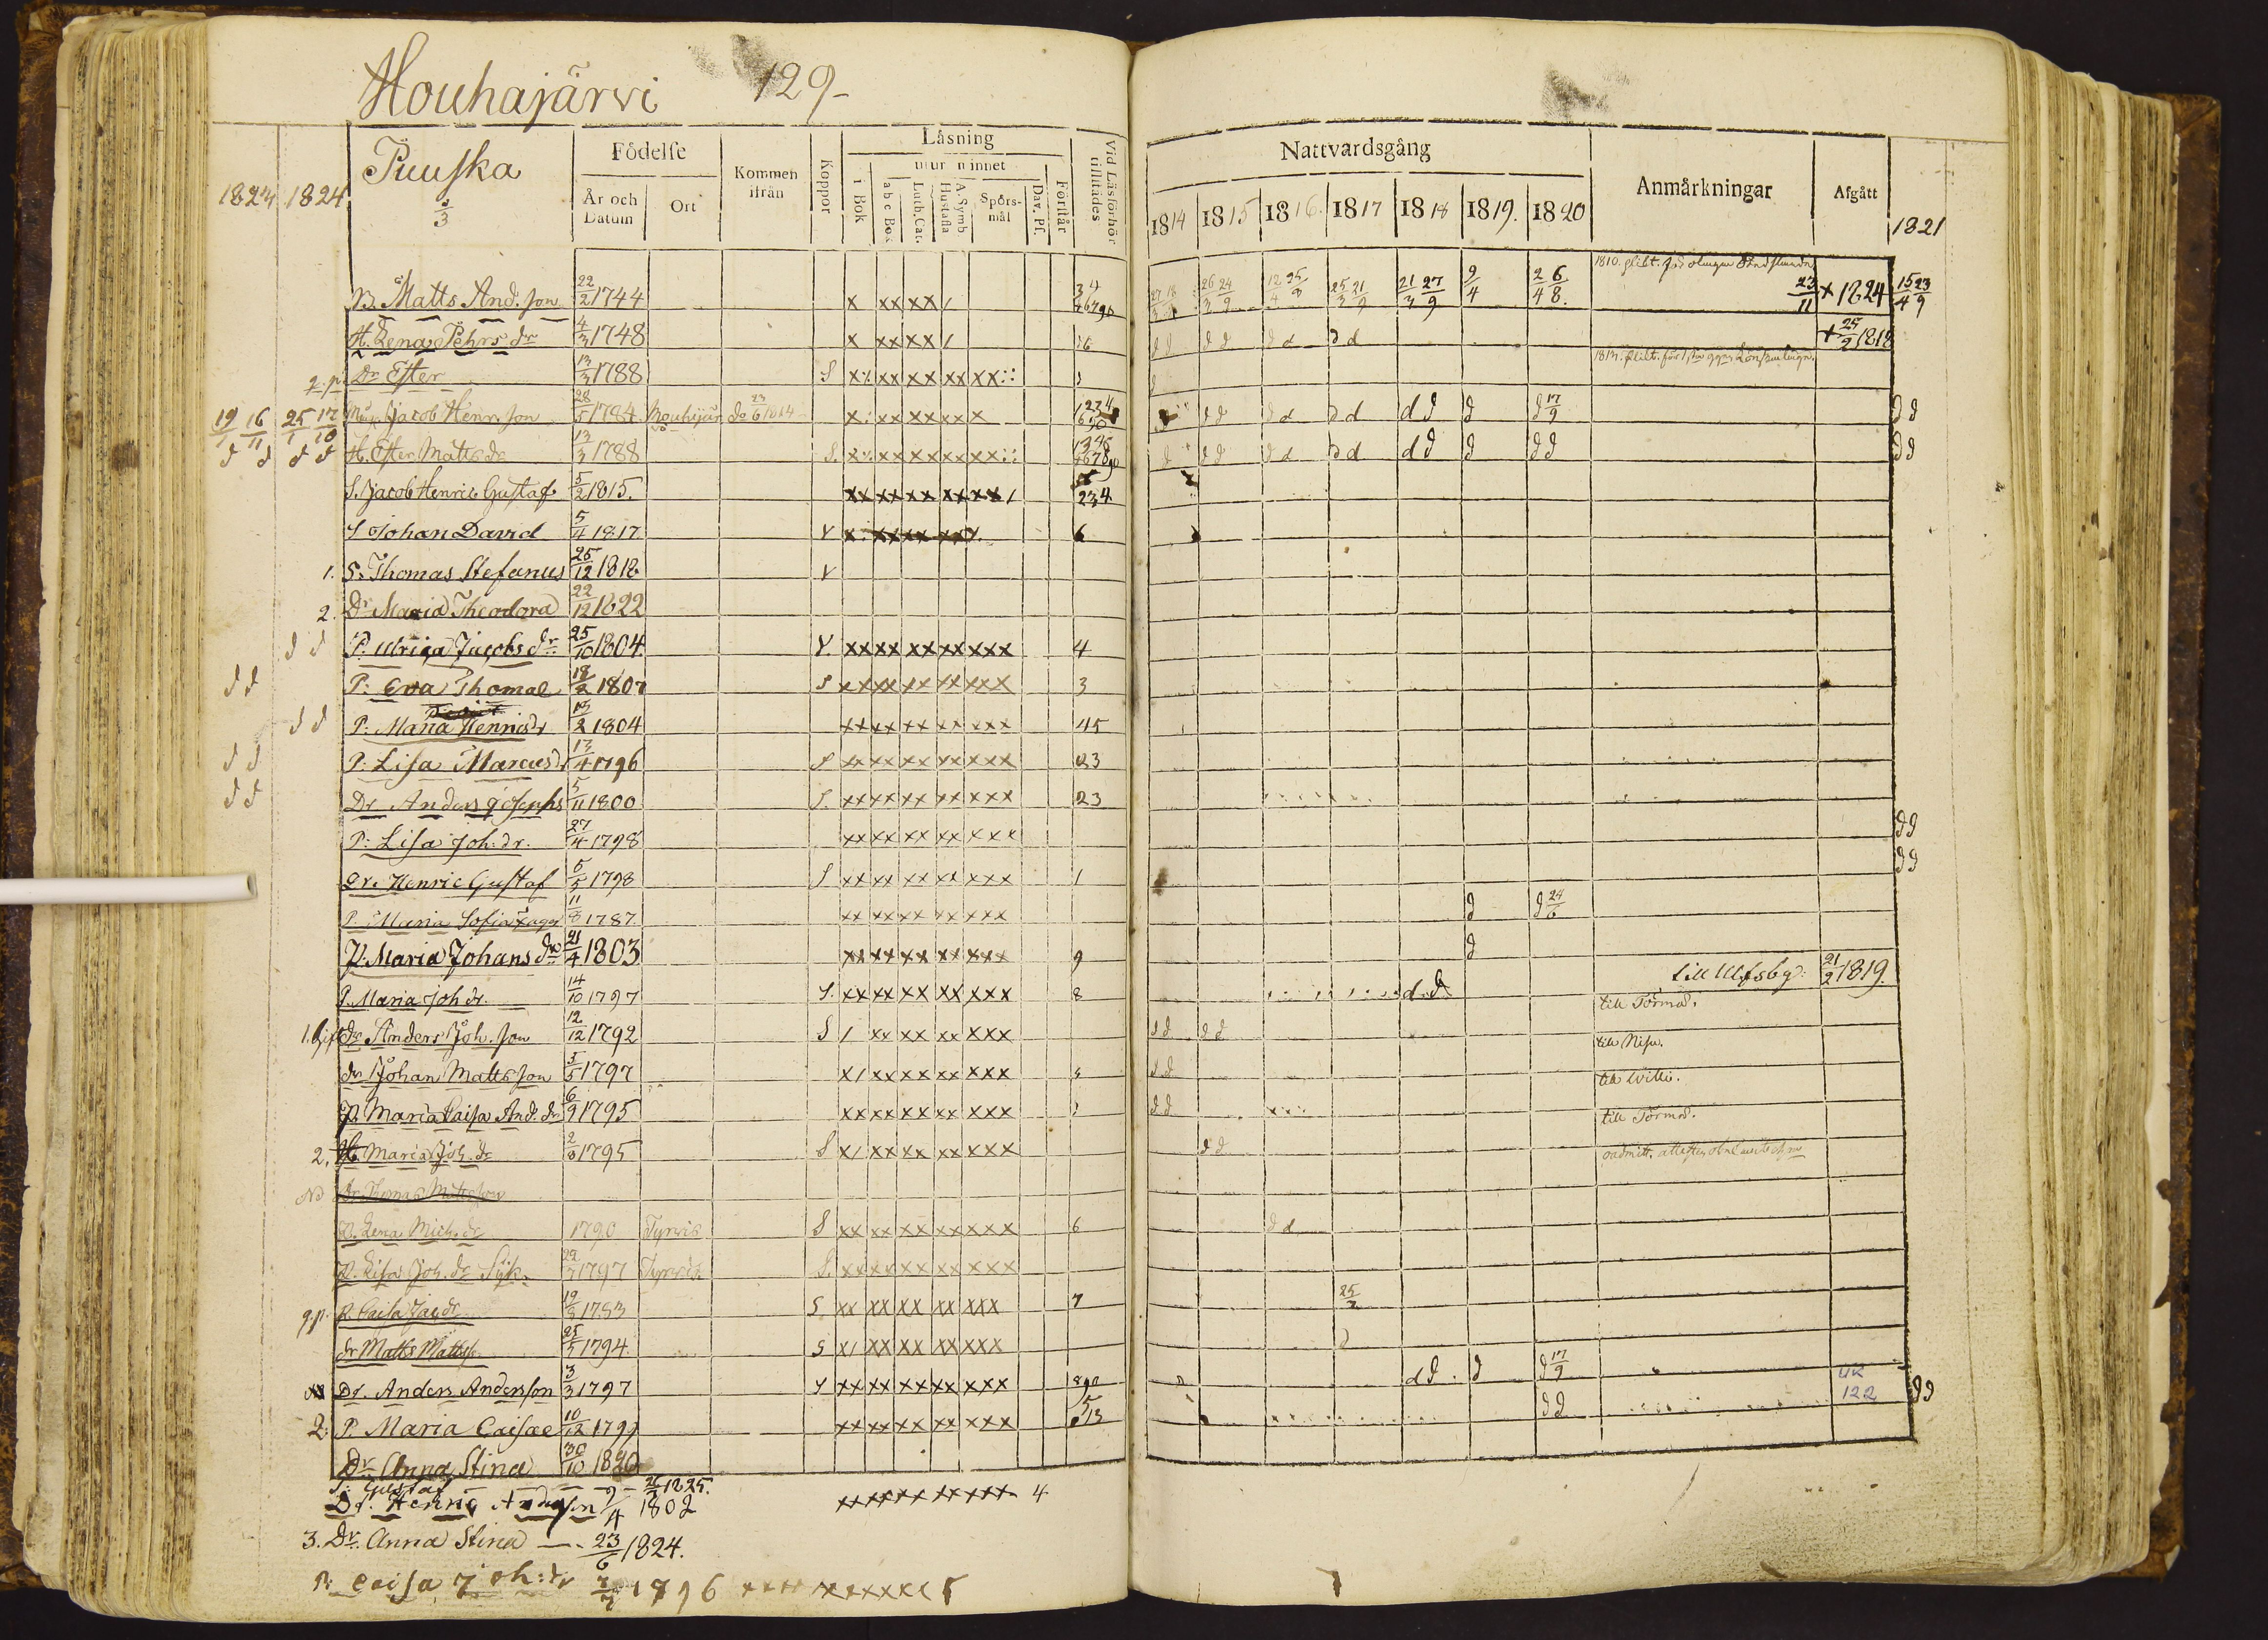 Houhajärvi 129-
1823 1824 Puuska 1/3 Födelse År och Datum Ort Kommen ifrån Koppor Läsning i Bok utur minnet abc Bok Luth. Cat. A. Symb Hustafla Spörsmål Dav. Ps. Förstår Vid Läsförhör tillstädes
Nattvardsgång 1814 1815 1816. 1817 1818 1819. 1820 Anmärkningar Afgått 1821
B. Matts And:son 22/2 1744 x xx xx / 27/3 26/3 24/9 12/4 25/8 25/3 21/9 21/3 27/9 9/4 2/4 6/8. 23/11 + 1824 15/4 23/9
H. Lena Pehrs dr 4/3 1748 x xx xx / d d d d d d d d + 25/2 1818
q.p. Dr Ester 13/3 1788 S x xx xx xx xx
19/1 16/11 25/1 17/10 Jacob Henr.son 28/5 1784 Mouhijär 23/6 1814 x xx xx xx x d d d d d d d d d d 17/9 d d
d d d d H. Ester Matts dr 13/3 1788 S. x xx xx xx xx d d d d d d d d d d d d d d
S. Jacob Henric Gustaf 5/2 1815. xx xx xx xx xx / 234
S Johan David 5/4 1817 Y x xx xx xx 6
1. S. Thomas Stefanus 25/12 1818 Y
2. Dr Maria Theodora 22/12 1822
d d P. Ulrica Jacobs dr 25/10 1804. Y. xx xx xx xx xxx 4
d d P: Eva Thomae 18/2 1807 S xx xx xx xx xxx 3
d d P: Maria Henricsdr 13/2 1804 xx xx xx xx xxx 45
d d P: Lisa Marcusdr 13/4 1796 S xx xx xx xx xxx 23
d d Dr Anders Josephs 5/11 1800 S. xx xx xx xx xxx 23
P: Lisa Joh: dr. 27/4 1798 xx xx xx xx xxx d d
Dr. Henric Gustaf 5/5 1798 S xx xx xx xx xxx 1 d d
P. Maria Sofia 11/8 1787 xx xx xx xx xxx d d 24/6
P: Maria Johans dr 21/4 1803 xx xx xx xx xxx 9 d
P. Maria Joh dr. 14/10 1797 S. xx xx xx xx xxx 8 d d till Ulfsbg: 21/2 1819.
1. gift dr Anders Joh. son 12/12 1792 S / xx xx xx xxx d d d d till Törmä.
dr Johan Matts son 5/5 1797 x/ xx xx xx xxx d d till Nisu.
P. Maria Caisa And. dr 6/9 1795 xx xx xx xx xxx d d till Willi.
2. H. Maria Joh. dr 2/8 1795 S x/ xx xx xx xxx d d till Törmä.
Dr Thomas Mattsson
P. Lena Mich. dr 1790 Tyrvis S xx xx xx xx xxx 6 d d
P. Lisa Joh. dr 22/7 1797 Tyrvis S. xx xx xx xx xxx
q.p. P. Caisa Jac. dr 19/8 1783 S xx xx xx xx xxx 7 25/2
dr Matts Matts 25/5 1794 S x/ xx xx xx xxx
Dr. Anders Andersson 3/3 1797 Y xx xx xx xx xxx 890 d d d d 17/9
2: P. Maria Caisae 10/12 1797 xx xx xx xx xxx d d UK 122 d d
Dr Anna Stina 30/10 1820
S: Gustaf 1825.
Dr. Henric Andersson 9/4 1802 xx xx xx xx xxx 4
3. Dr. Anna Stina 23/6 1824.
P: Caisa Joh: dr 1796 xxxx xxxxxx 5